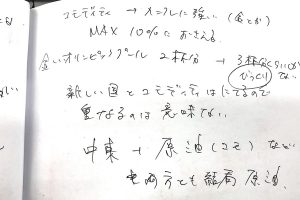 コモディティ → インフレに強い (金とか)
MAX 10%におさえる
金いオリンピックプール 2杯分 → 3杯分くらいしか
びっくり
新しい国とコモディティはにてるので
重なるのは意味ない
中東 → 原油(コモ) など
も両方とも結局 原油.